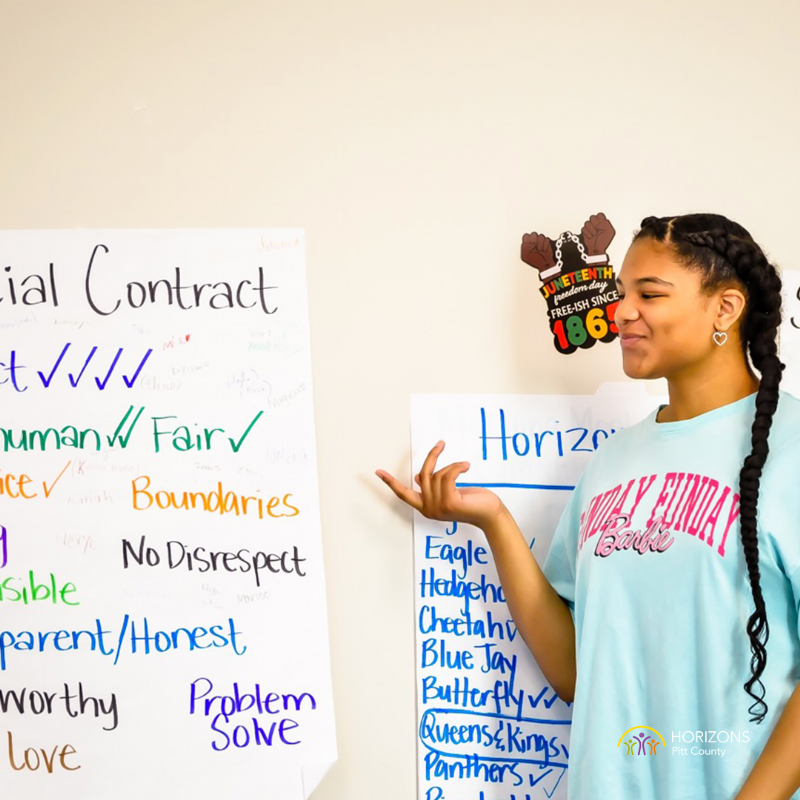 cial Contract
ct ✓✓✓✓
human ✓✓ Fair ✓
ice ✓
Boundaries
g
No Disrespect
sible
parent/Honest
worthy
Problem
Solve
love
JUNETEENTH
freedom day
FREE-ISH SINCE
1865
Horizon
Eagle
Hedgeho
Cheetah ✓
Blue Jay
Butterfly ✓✓
Queens & Kings
Panthers ✓✓
SUNDAY FUNDAY
Barbie
HORIZONS
Pitt County